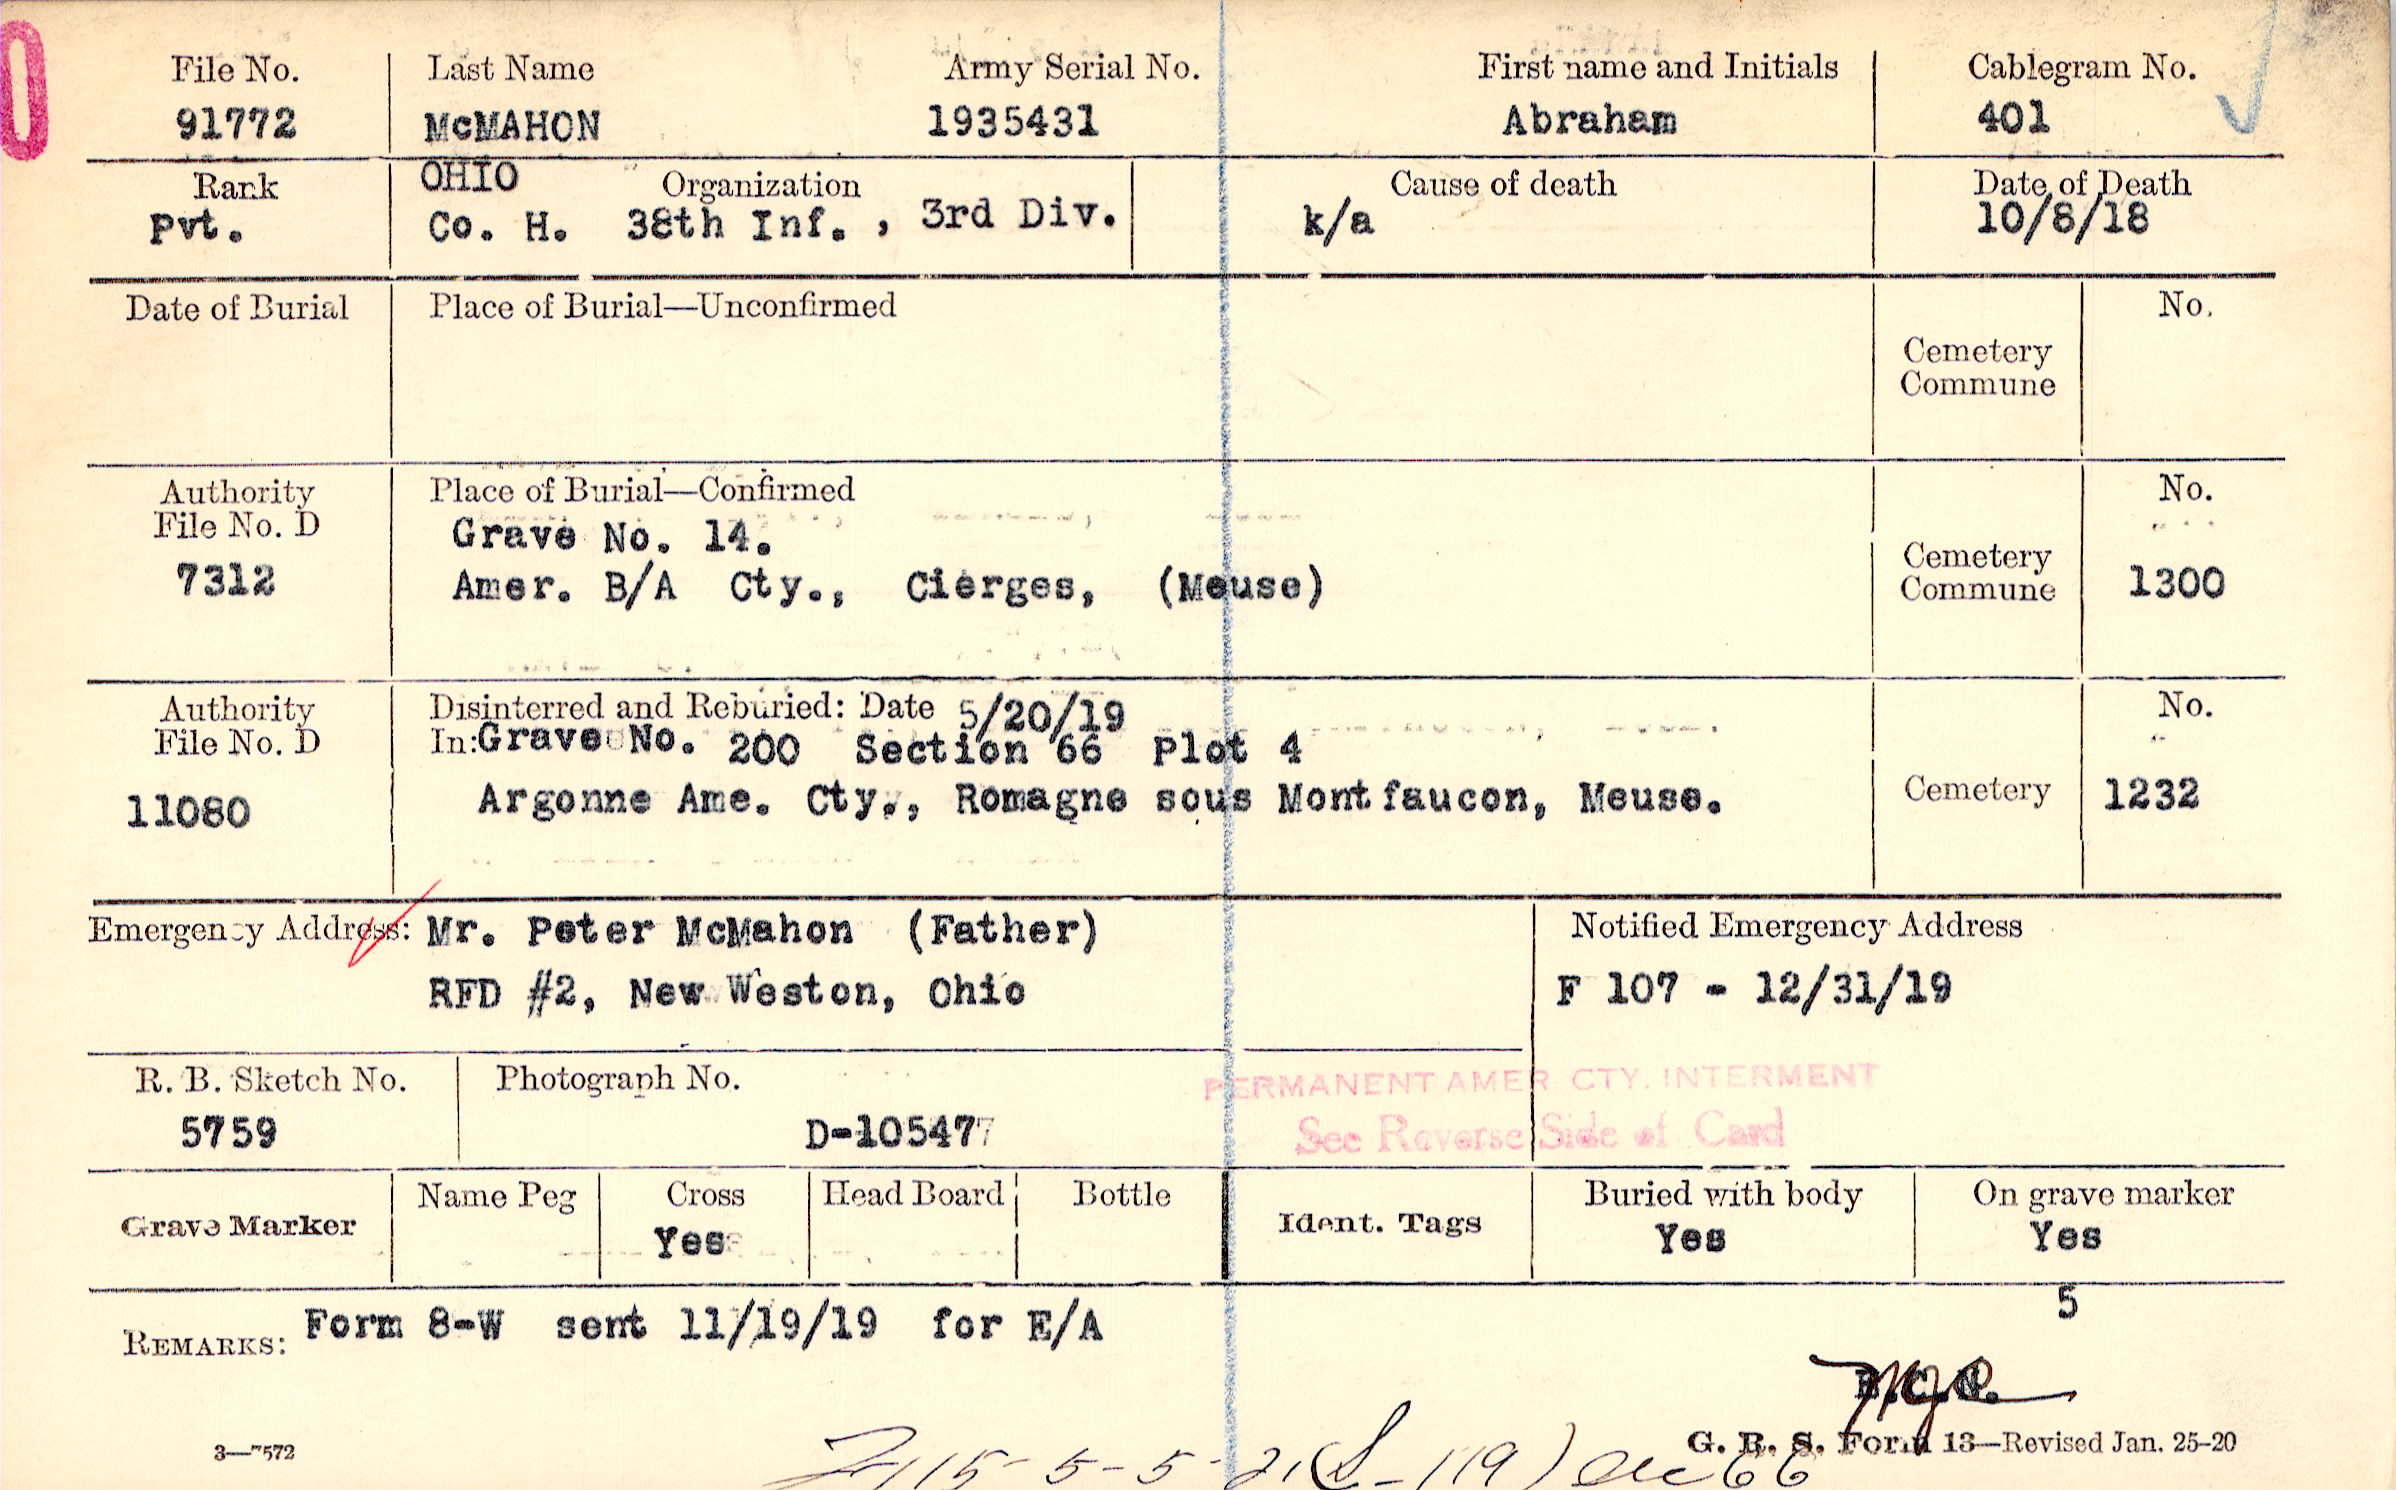 File No. Last Name Army Serial No. First name and Initials Cablegram No.
91772 McMAHON 1935431 Abraham 401
Rank OHIO Organization Cause of death Date of Death
Pvt. Co. H. 38th Inf. , 3rd Div. k/a 10/8/18
Date of Burial Place of Burial—Unconfirmed No.
Cemetery
Commune
Authority Place of Burial—Confirmed No.
File No. D Grave No. 14.
7312 Amer. B/A Cty., Cierges, (Meuse) Cemetery
Commune 1300
Authority Disinterred and Reburied: Date 5/20/19 No.
File No. D In: Grave No. 200 Section 66 Plot 4
11080 Argonne Ame. Cty., Romagne sous Montfaucon, Meuse. Cemetery 1232
Emergency Address: Mr. Peter McMahon (Father) Notified Emergency Address
RFD #2, New Weston, Ohio F 107 - 12/31/19
R. B. Sketch No. Photograph No. PERMANENT AMER. CTY. INTERMENT
5759 D-10547 See Reverse Side of Card
Grave Marker Name Peg Cross Head Board Bottle Ident. Tags Buried with body On grave marker
Yes Yes Yes
5
REMARKS: Form 8-W sent 11/19/19 for E/A
3—7572 G. R. S. Form 13—Revised Jan. 25-20